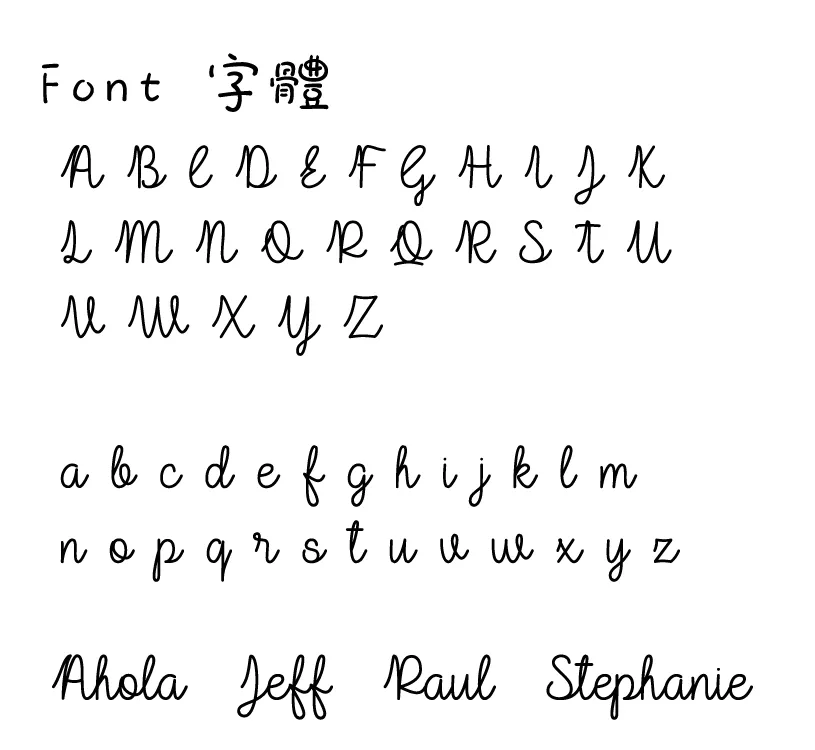 Font 字體
A B C D E F G H I J K
L M N O R Q R S T U
V W X Y Z
a b c d e f g h i j k l m
n o p q r s t u v w x y z
Ahola Jeff Raul Stephanie